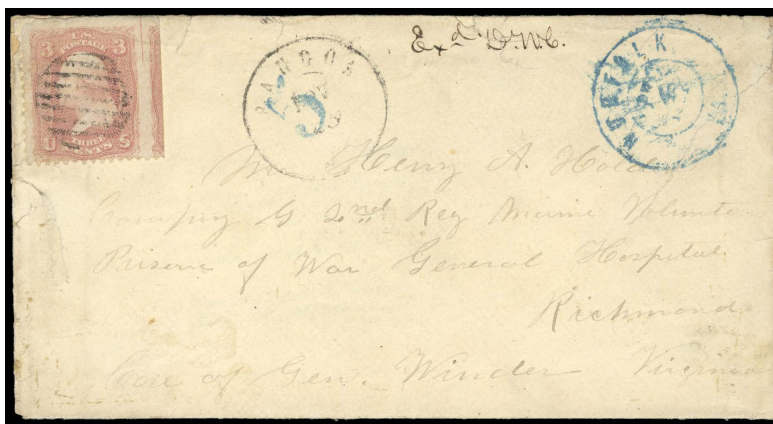 3 U.S. 3
POSTAGE
U THREE S
CENTS
Exd D.W.C.
BANGOR
5
NORFOLK VA.
Mr Henry A. Holden
Company G 2nd Reg Maine Volunteer
Prisener of War General Hospital.
Richmond
Care of Gen. Winder Virginia